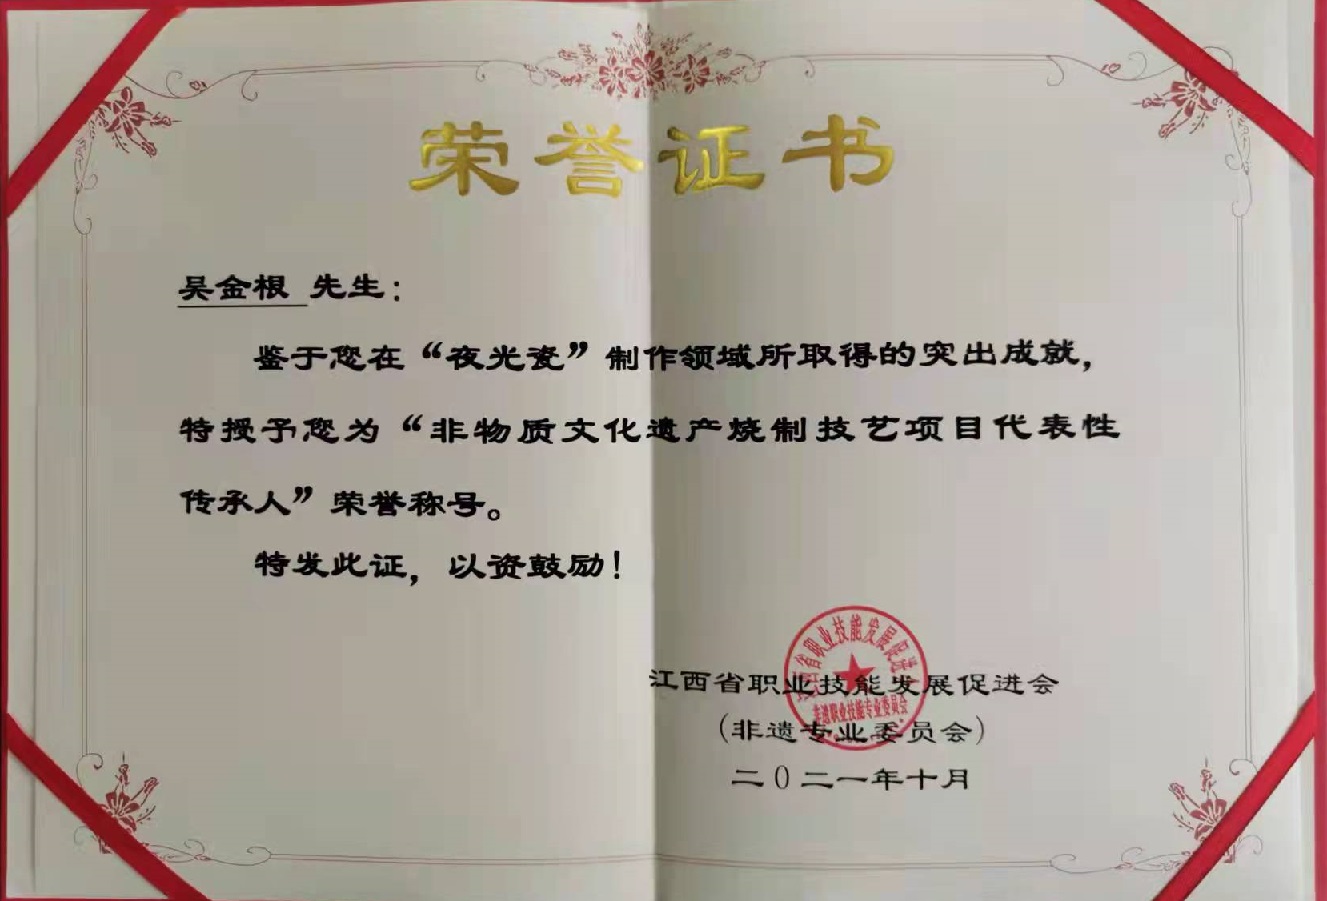 荣誉证书
吴金根 先生：
鉴于您在“夜光瓷”制作领域所取得的突出成就，
特授予您为“非物质文化遗产烧制技艺项目代表性
传承人”荣誉称号。
特发此证，以资鼓励！
江西省职业技能发展促进会
（非遗专业委员会）
二0二一年十月
江西省职业技能发展促进会
非遗职业技能专业委员会